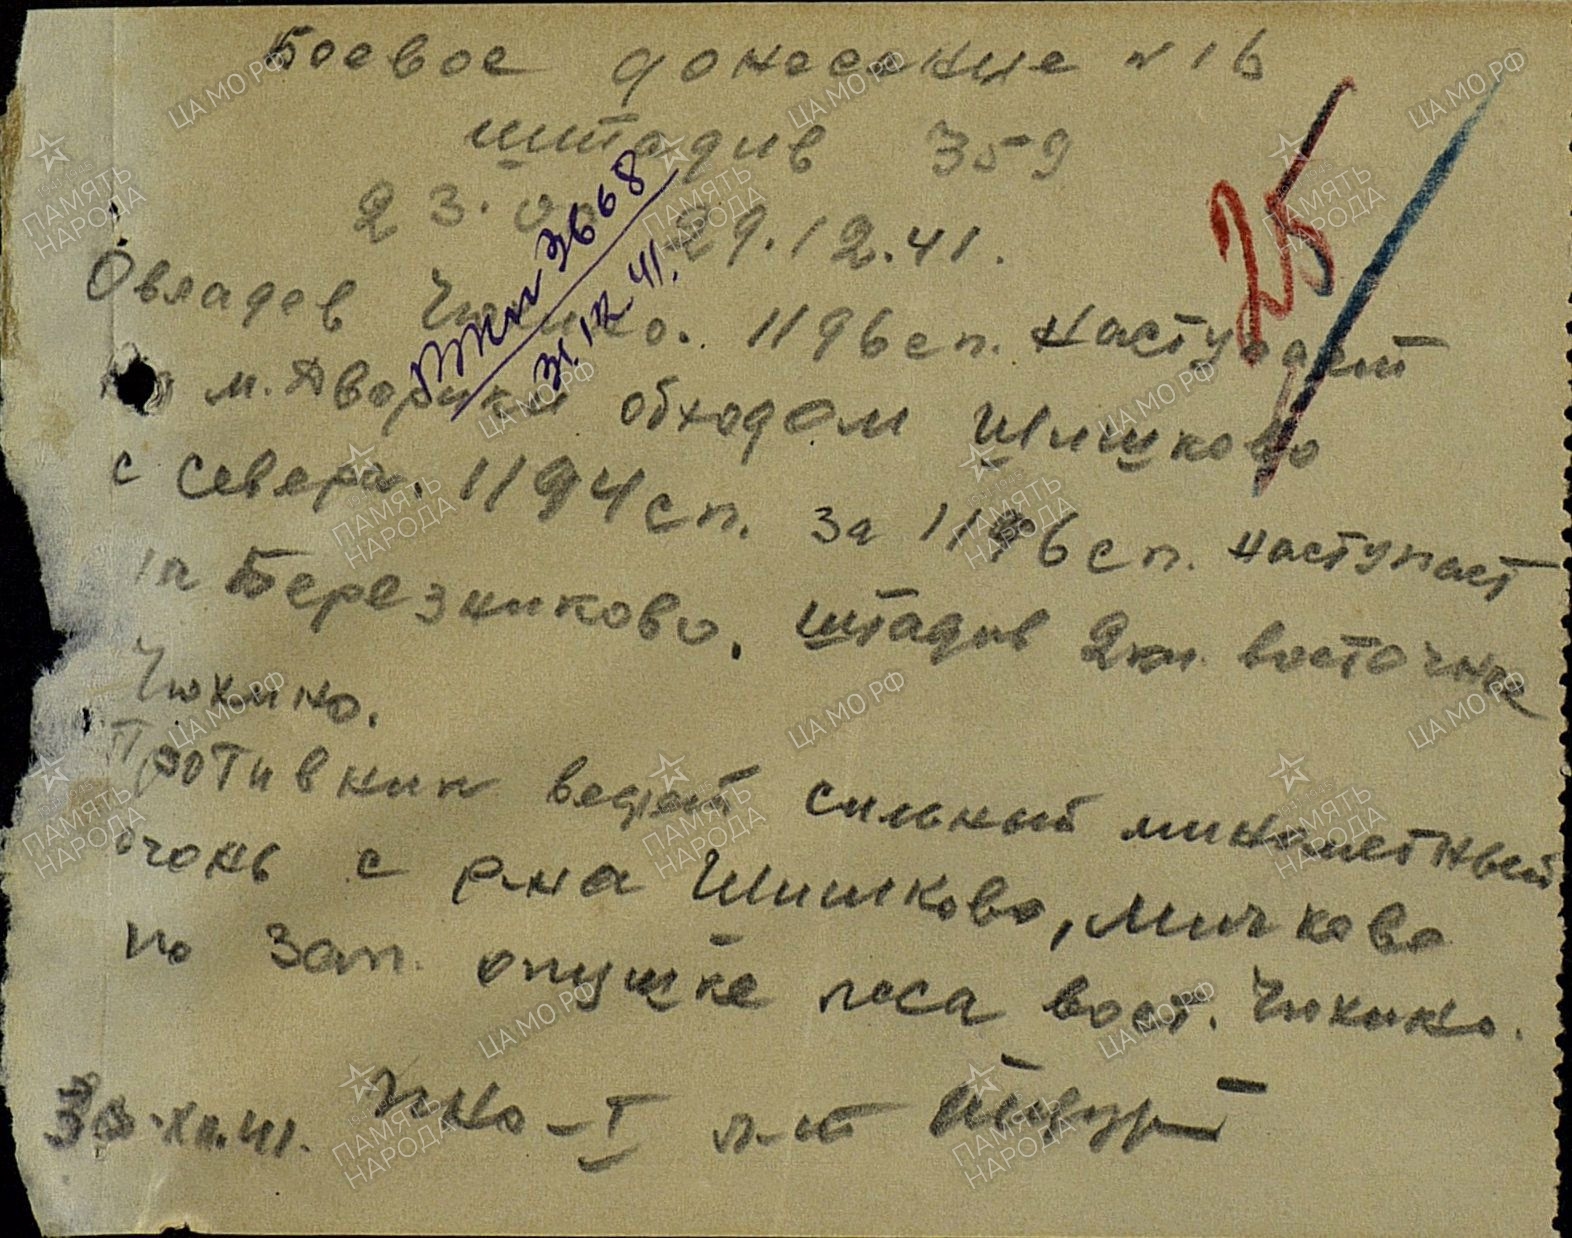 Боевое донесение №16
штадив 359
23.00 29.12.41.
Овладев Чухино. 1196 сп. наступает
на м. Дворики обходом Шишково
с севера. 1194 сп. за 1196 сп. наступает
на Березниково. штадив 2 км. восточнее
Чухино.
Противник ведет сильный минометный
огонь с р-на Шишково, Мичково
по зап. опушке леса вост. Чухино.
30.XII.41. ПНО-I л-т
3668
31.12.41.
25